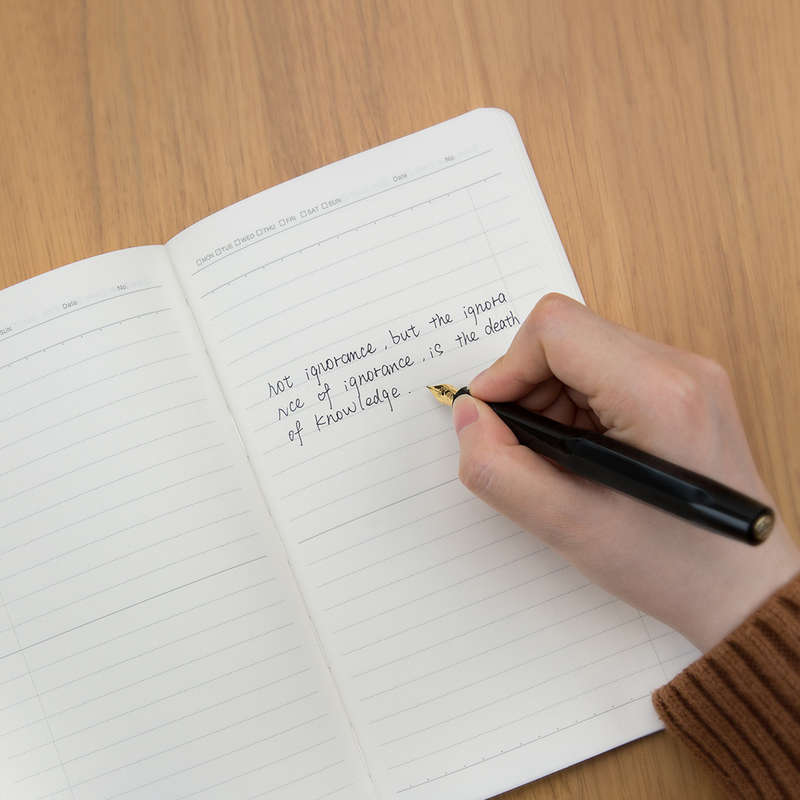 SUN Date No.
□MON □TUE □WED □THU □FRI □SAT □SUN Date No.
not ignorance , but the ignora
nce of ignorance , is the death
of knowledge .